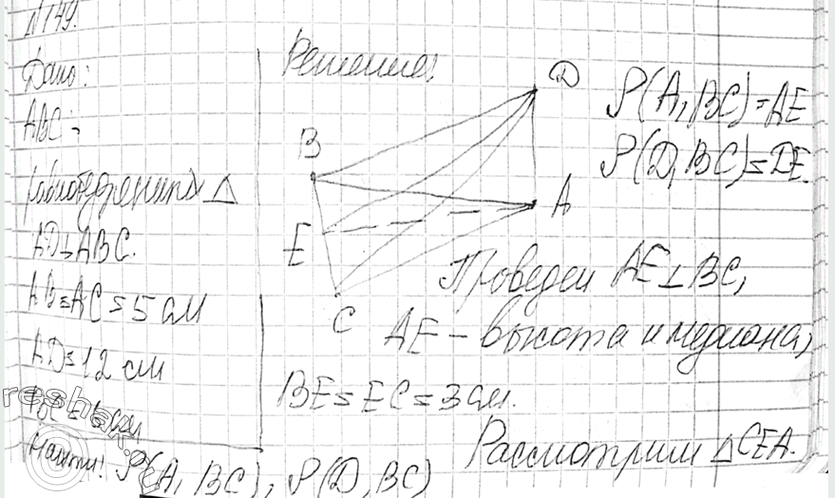 N149.
Дано:
ABC -
равнобедренный △
AD⊥ABC.
AB=AC=5 см
AD=12 см
BC=6 см
Найти: ρ(A, BC), ρ(D, BC)
Решение:
D
B
A
E
C
ρ(A, BC)=AE
ρ(D, BC)=DE.
Проведем AE⊥BC,
AE – высота и медиана,
BE=EC=3 см.
Рассмотрим △CEA.
reshak.ru